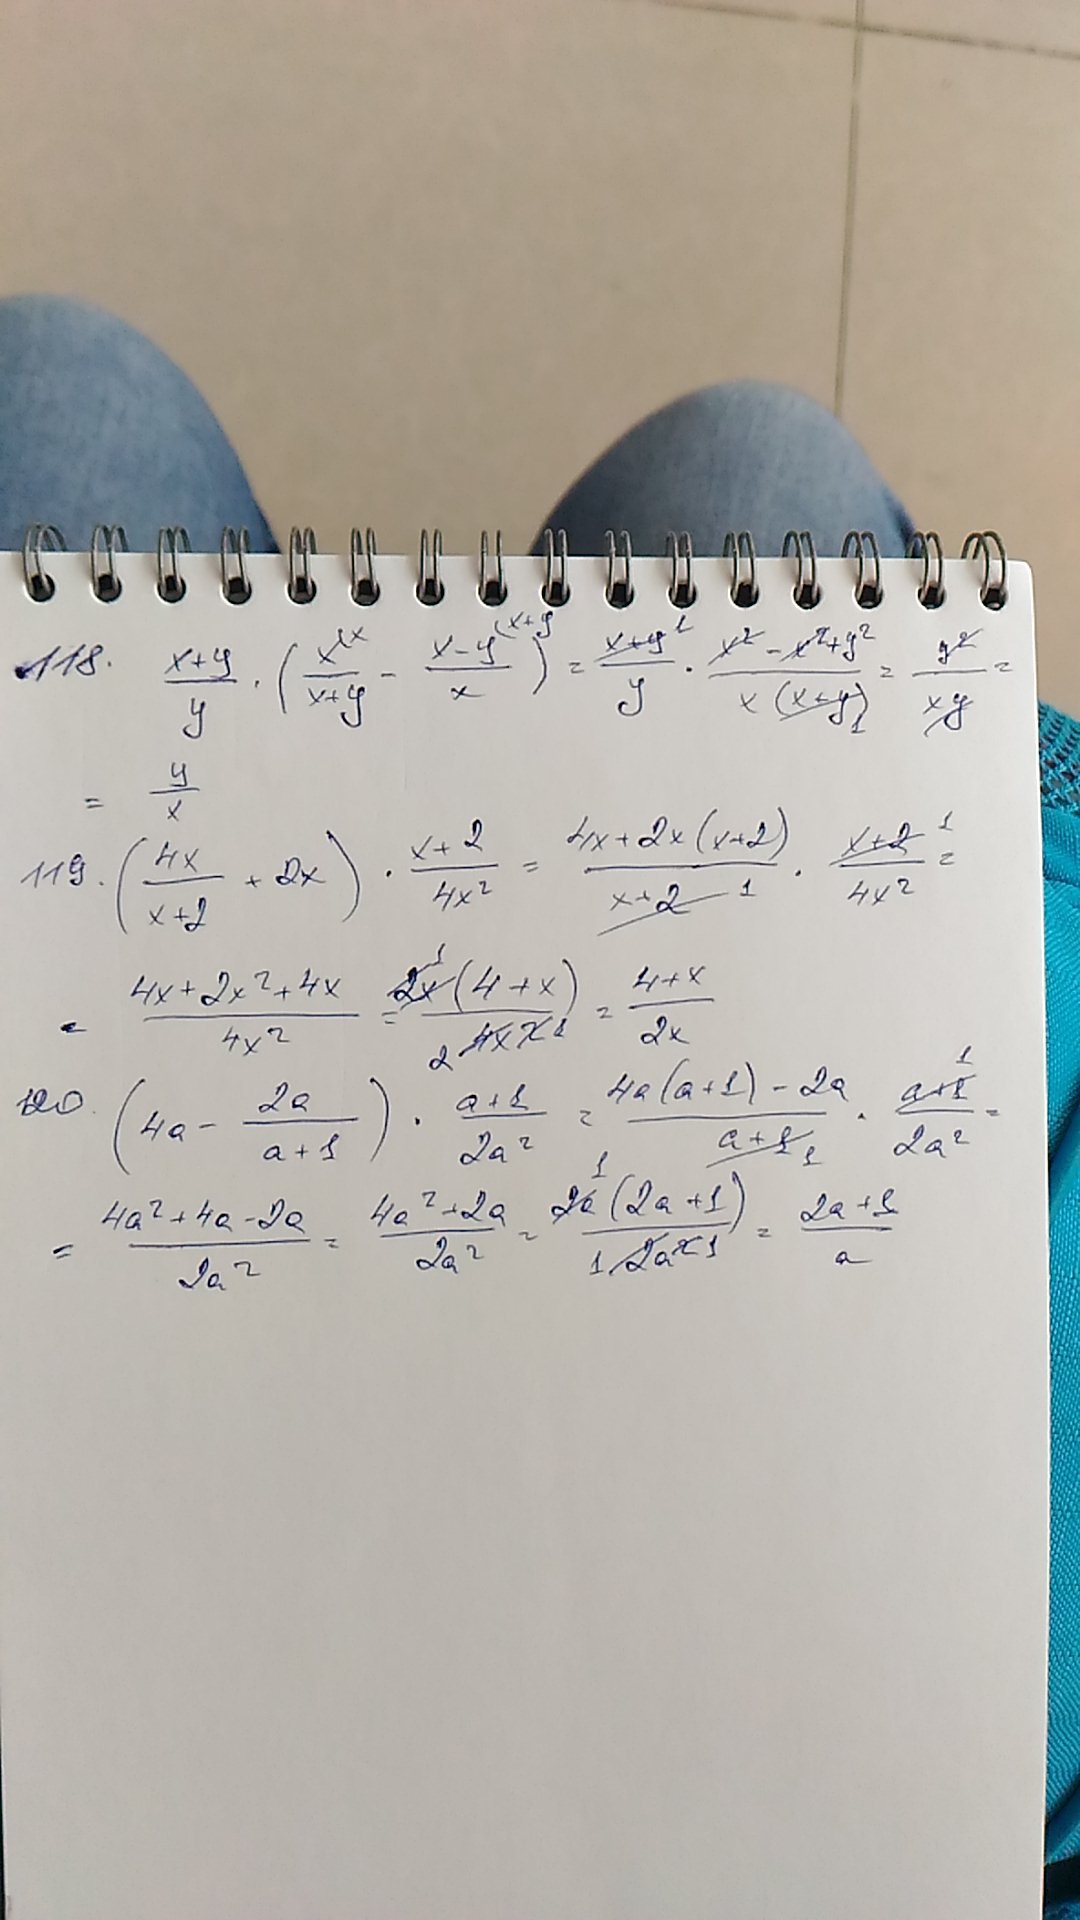 118. (x+y)/y · (x^(x/(x+y) - (x-y)^(x+y/x) = (x+y)^1/y · (x²-x²+y²)/(x(x+y)1) = y²/xy =
= y/x
119. (4x/(x+2) + 2x) · (x+2)/4x² = (4x+2x(x+2))/(x+2 1) · (x+2 1)/4x² =
= (4x+2x²+4x)/4x² = (2x 1(4+x))/(2 4x² 1) = (4+x)/2x
120. (4a - 2a/(a+1)) · (a+1)/2a² = (4a(a+1)-2a)/(a+1 1) · (a+1 1)/2a² =
= (4a²+4a-2a)/2a² = (4a²+2a)/2a² = (2a 1(2a+1))/(1 2a² 1) = (2a+1)/a